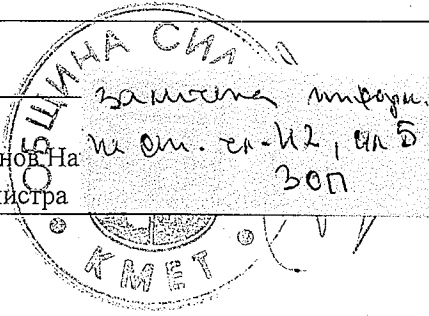 ОБЩИНА СИЛ
заличена информ.
по чл. 42, ал 5
ЗОП
нов На
истра
КМЕТ